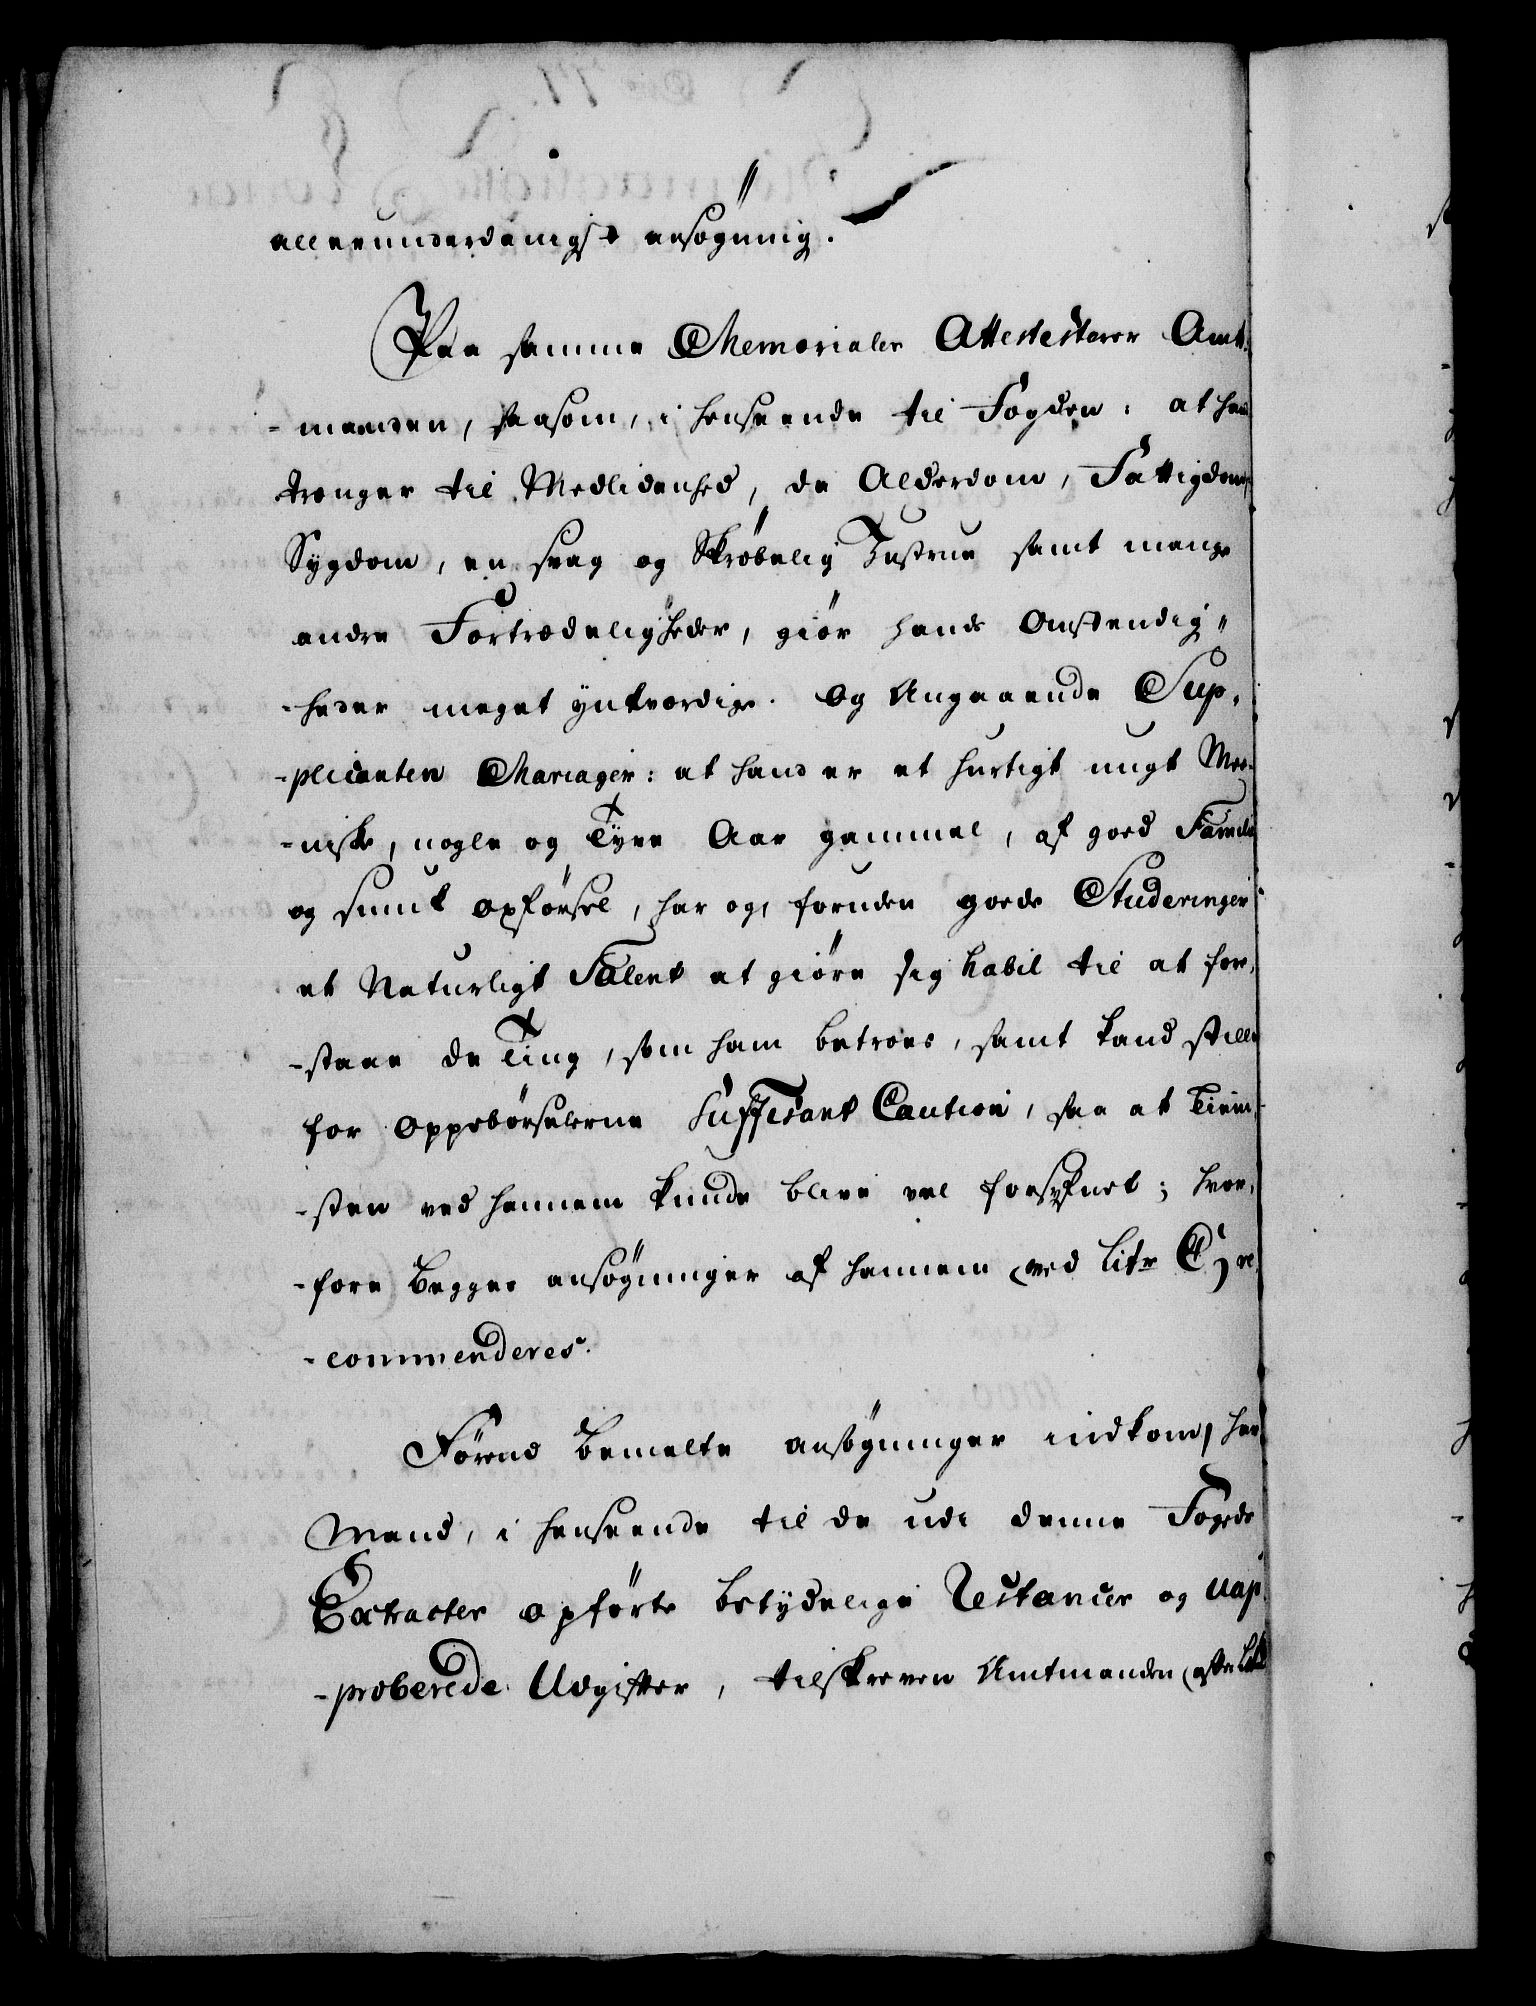 allerunderdanigst ansøgning.
Paa samme Memorialer Attestester Amt-
-manden, saasom, i henseende til Fogden: at hand
trænger til Medlidenhed, da Alderdom, Fattigdom,
Sygdom, en svag og Skrøbelig Hustrue samt mange
andre Fortrædeligheder, giør hands Omstendig-
-heder meget ynkværdige. Og Angaaende Sup-
-plicanten Mariager: at hand er et hurtigt ungt Men-
-niske, nogle og Tyve Aar gammel, af goed Familie
og smuk opførsel, har og, foruden goede Studeringer
et Naturligt Talent at giøre sig habil til at for-
-staae de Ting, som ham betroes, samt kand stille
for Oppebørselerne Suffisant Caution, saa at Tienne-
-sten ved hannem kunde blive vel forsÿnet; hvor-
-fore begges ansøgninger af hannem (ved Litr C) re-
-commenderes.
Førend bemelte ansøgninger indkom, har
Mand, i henseende til de udi denne Fogeds
Extracter opførte betydelige Restancer og Uap-
-proberede Udgifter, tilskreven Amtmanden (efter